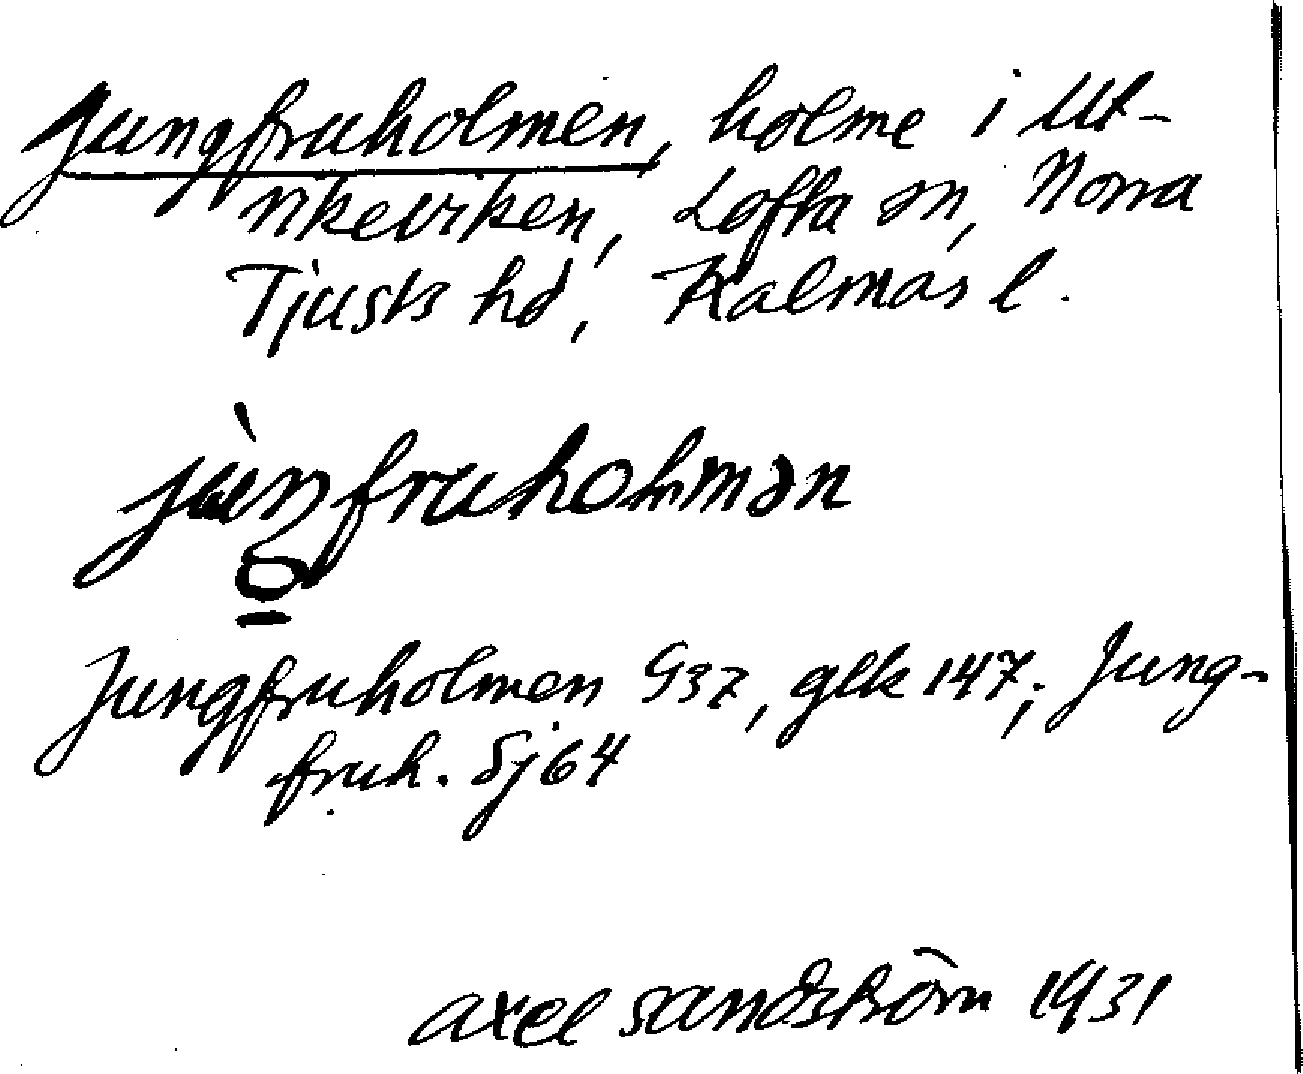 Jungfruholmen, holme i Ut-
rikeviken, Lofta sn, Norra
Tjusts hd, Kalmar l.
Jungfruholmen G37, glk 147; Jung-
fruh. Sj 64
Axel Sandström 1931